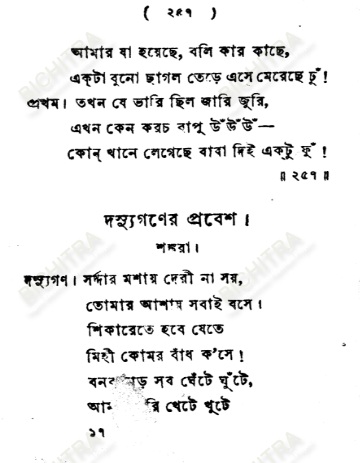 ( ২৫৭ )
আমার যা হয়েছে, বলি কার কাছে,
একটা বুনো ছাগল তেড়ে এসে মেরেছে ঢুঁ!
প্রথম। তখন যে ভারি ছিল জারি জুরি,
এখন কেন করচ বাপু উঁ উঁ উঁ—
কোন্ খানে লেগেছে বাবা দিই একটু ফুঁ!
॥ ২৫৭ ॥
দস্যুগণের প্রবেশ।
শঙ্করা।
দস্যুগণ। সর্দ্দার মশায় দেরী না সয়,
তোমার আশায় সবাই বসে।
শিকারেতে হবে যেতে
মিহী কোমর বাঁধ ক'সে!
সব ঘেঁটে ঘুঁটে,
খেটে খুটে
১৭